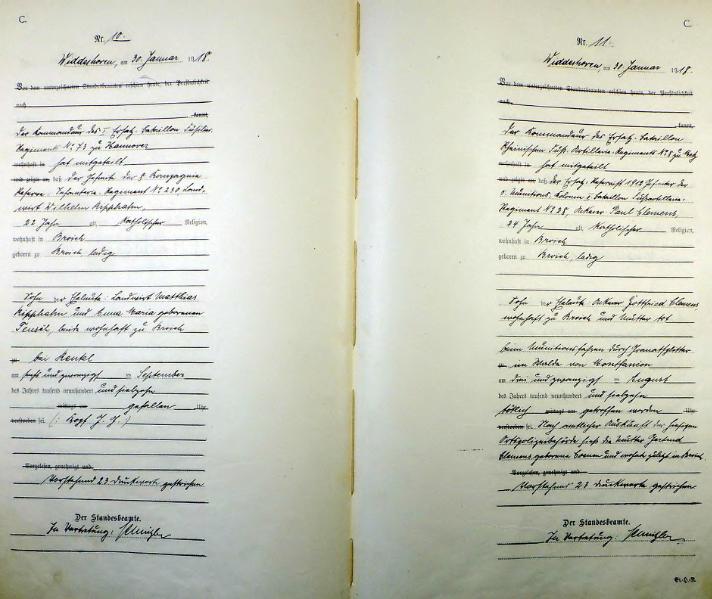 C.
Nr. 10.
Widdeshoven, am 30. Januar 1918.
Vor dem unterzeichneten Standesbeamten erschien heute, der Persönlichkeit
nach
kannt,
Der Kommandeur des I Ersatz-Bataillon Füsilier
Regiment No 73 zu Hannover
wohnhaft in hat mitgeteilt
und zeigte an, daß der Gefreite der 8 Kompagnie
Reserve-Infanterie-Regiment No 230 Land-
wirt Wilhelm
22 Jahre alt, katholischer Religion,
wohnhaft in Broich
geboren zu Broich, ledig
Sohn der Eheleute: Landwirt Matthias
und Anna Maria geborenen
beide wohnhaft zu Broich
bei
am fünf und zwanzigsten September
des Jahres tausend neunhundert und siebzehn
gefallen Uhr
verstorben sei. (: Kopf :)
Vorgelesen, genehmigt und
Vorstehend 23 Druckworte gestrichen
Der Standesbeamte.
In Vertretung:
C.
Nr. 11.
Widdeshoven, am 30 Januar 1918.
Vor dem unterzeichneten Standesbeamten erschien heute, der Persönlichkeit
nach
kannt,
Der Kommandeur des Ersatz-Bataillon
Rheinischen Fuß-Artillerie-Regiments No 8 zu Metz
hat mitgeteilt
und zeigte an, daß der Ersatz-Reservist 1912 Gefreiter der
Munitions-Kolonne Bataillon Fußartillerie-
Regiment No 28, Ackerer Paul Clemens,
24 Jahre alt, katholischer Religion,
wohnhaft in Broich
geboren zu Broich, ledig
Sohn der Eheleute Ackerer Gottfried Clemens
wohnhaft zu Broich und Mutter tot
beim Munitionsfahren durch Granatsplitter
im Walde von
am drei und zwanzigsten August
des Jahres tausend neunhundert und siebzehn
tötlich getroffen worden Uhr
verstorben sei. Nach amtlicher Auskunft der hiesigen
Ortspolizeibehörde hieß die Mutter Gertrud
Clemens geborene und wohnte zuletzt in Broich.
Vorgelesen, genehmigt und
Vorstehend 23 Druckworte gestrichen
Der Standesbeamte.
In Vertretung: